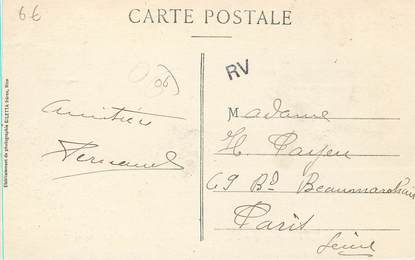 6€
CARTE POSTALE
RV
06
Etablissement de photographie GILETTA frères, Nice
Amitiés
Fernand
Madame
H. Payen
69 Bd Beaumarchais
Paris
Seine